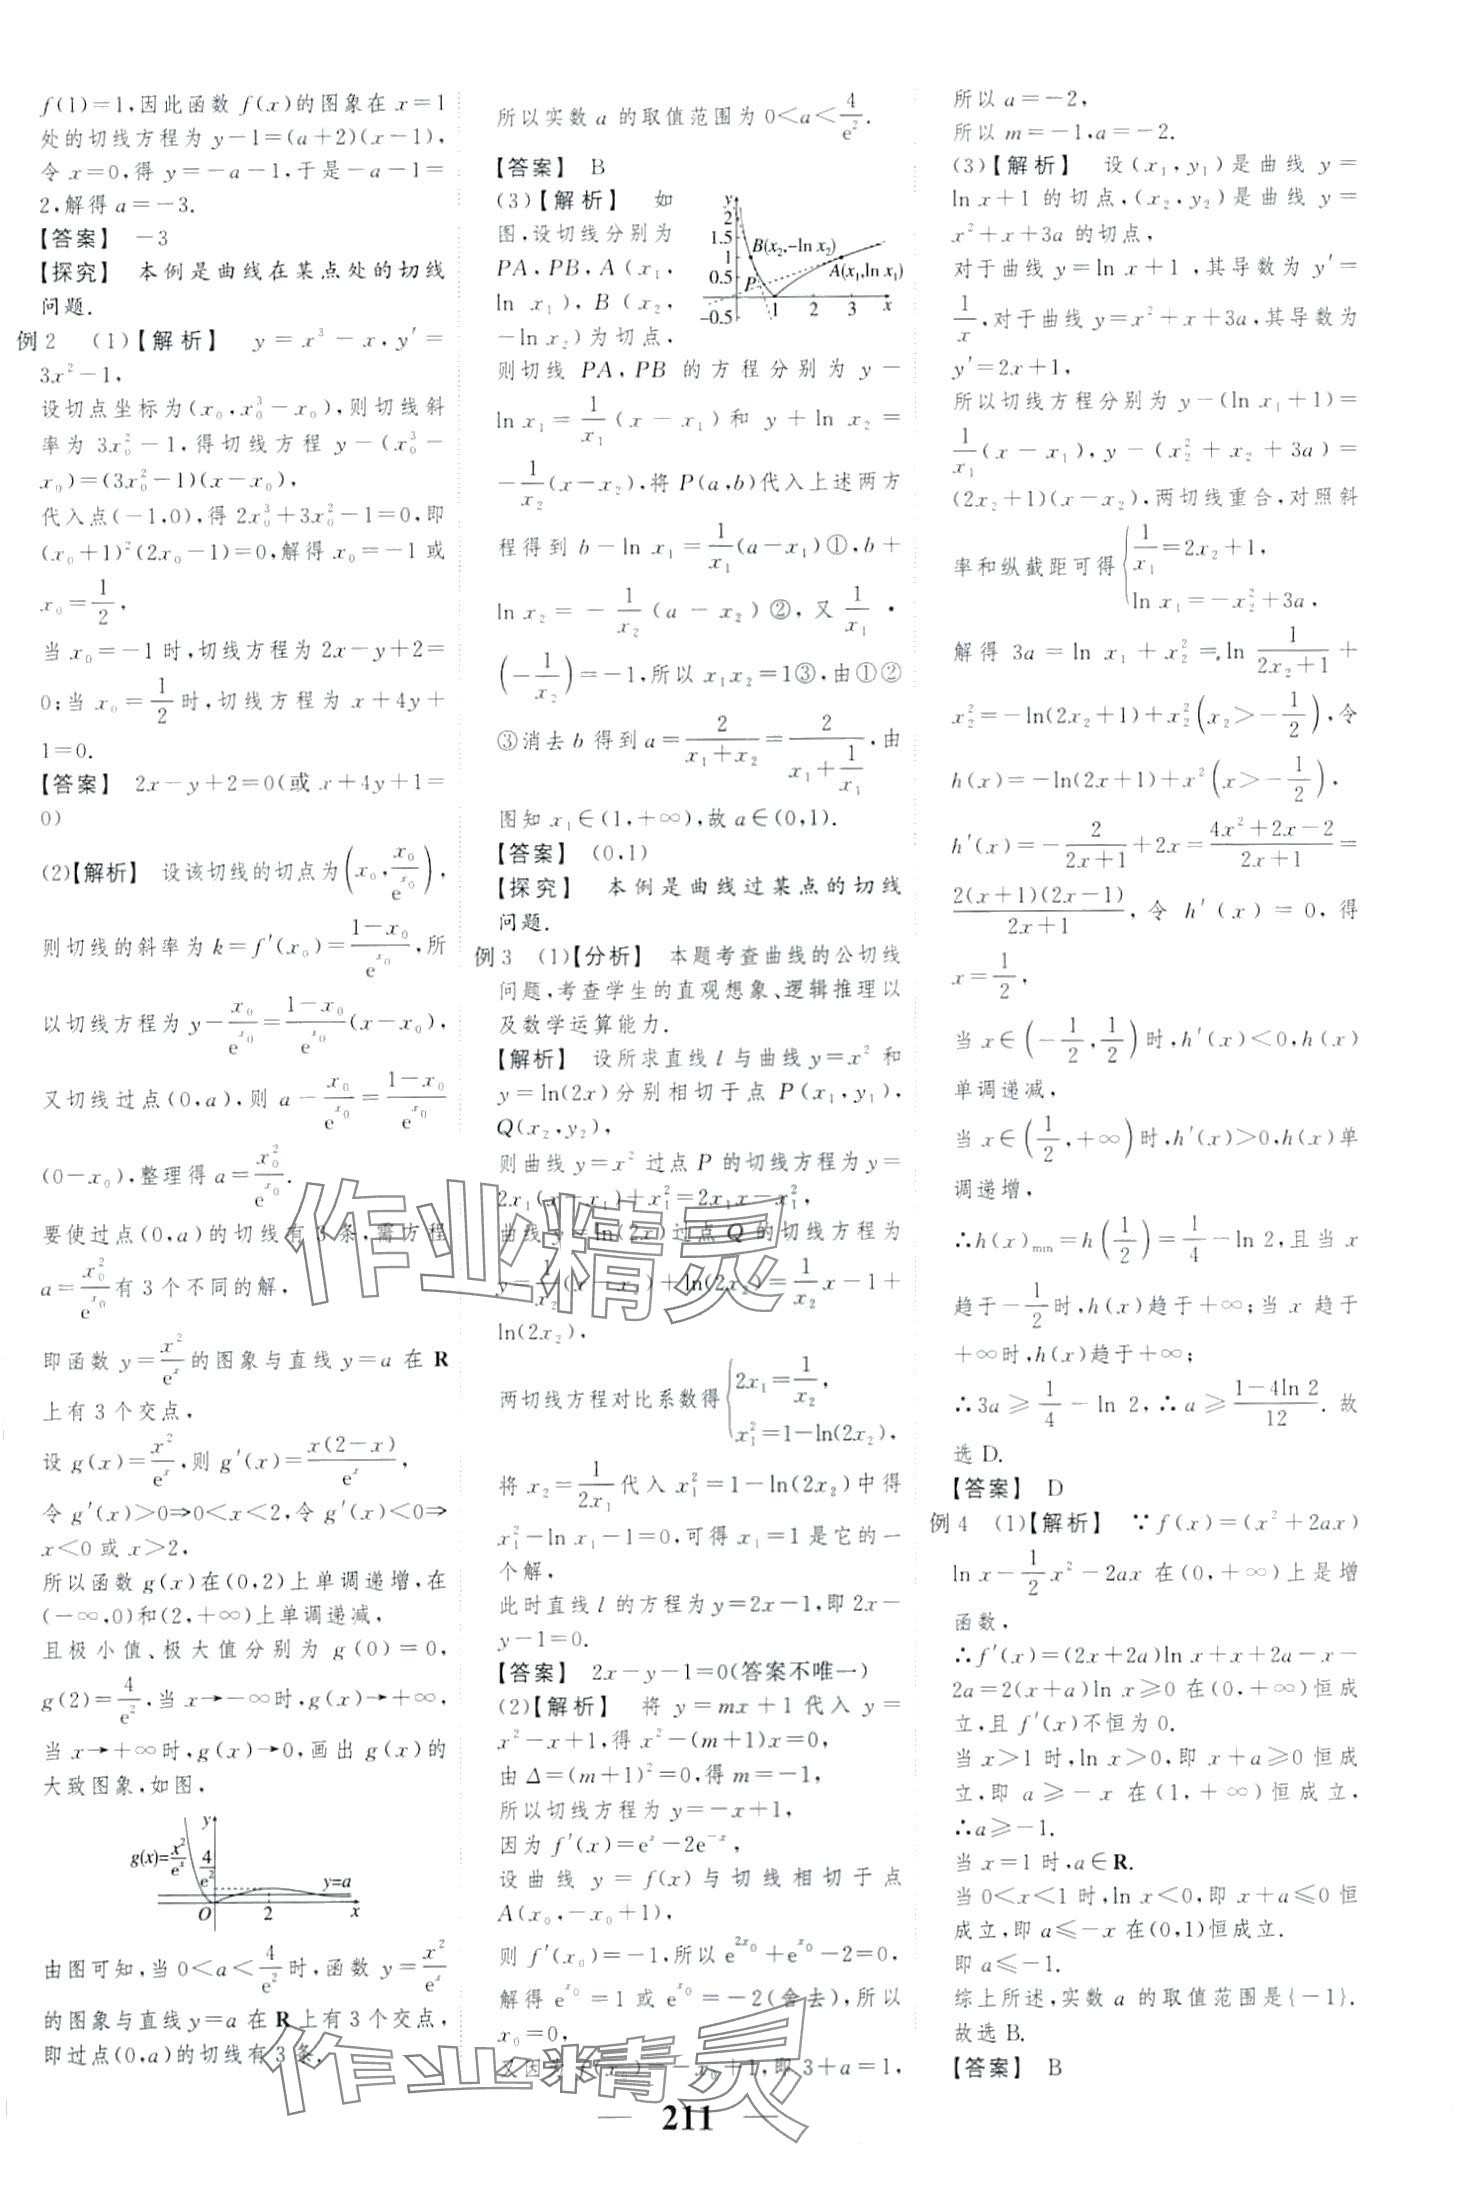 f(1)=1,因此函数 f(x)的图象在 x=1
处的切线方程为 y-1=(a+2)(x-1),
令 x=0,得 y=-a-1,于是-a-1=
2,解得 a=-3.
【答案】 -3
【探究】 本例是曲线在某点处的切线
问题.
例2 (1)【解析】 y=x³-x,y′=
3x²-1,
设切点坐标为(x₀,x₀³-x₀),则切线斜
率为 3x₀²-1,得切线方程 y-(x₀³-
x₀)=(3x₀²-1)(x-x₀),
代入点(-1,0),得 2x₀³+3x₀²-1=0,即
(x₀+1)²(2x₀-1)=0,解得 x₀=-1或
x₀=1/2,
当 x₀=-1时,切线方程为 2x-y+2=
0;当 x₀=1/2时,切线方程为 x+4y+
1=0.
【答案】 2x-y+2=0(或 x+4y+1=
0)
(2)【解析】 设该切线的切点为(x₀,x₀/e^x₀),
则切线的斜率为 k=f′(x₀)=(1-x₀)/e^x₀,所
以切线方程为 y-x₀/e^x₀=(1-x₀)/e^x₀(x-x₀),
又切线过点(0,a),则 a-x₀/e^x₀=(1-x₀)/e^x₀
(0-x₀),整理得 a=x₀²/e^x₀.
要使过点(0,a)的切线有3条,需方程
a=x₀²/e^x₀有3个不同的解,
即函数 y=x²/e^x的图象与直线 y=a 在 R
上有3个交点,
设 g(x)=x²/e^x,则 g′(x)=x(2-x)/e^x,
令 g′(x)>0⇒0<x<2,令 g′(x)<0⇒
x<0 或 x>2,
所以函数 g(x)在(0,2)上单调递增,在
(-∞,0)和(2,+∞)上单调递减,
且极小值、极大值分别为 g(0)=0,
g(2)=4/e²,当 x→-∞时,g(x)→+∞,
当 x→+∞时,g(x)→0,画出 g(x)的
大致图象,如图,
y
g(x)=x²/e^x
4/e²
y=a
O 2 x
由图可知,当 0<a<4/e²时,函数 y=x²/e^x
的图象与直线 y=a 在 R 上有3个交点,
即过点(0,a)的切线有3条,
所以实数 a 的取值范围为 0<a<4/e².
【答案】 B
(3)【解析】 如
图,设切线分别为
PA,PB,A(x₁,
ln x₁),B(x₂,
-ln x₂)为切点,
y
2
1.5
1
0.5
-0.5
B(x₂,-ln x₂)
A(x₁,ln x₁)
P
1 2 3 x
则切线 PA,PB 的方程分别为 y-
ln x₁=1/x₁(x-x₁)和 y+ln x₂=
-1/x₂(x-x₂),将 P(a,b)代入上述两方
程得到 b-ln x₁=1/x₁(a-x₁)①,b+
ln x₂=-1/x₂(a-x₂)②,又 1/x₁·
(-1/x₂)=-1,所以 x₁x₂=1③,由①②
③消去 b 得到 a=2/(x₁+x₂)=2/(x₁+1/x₁),由
图知 x₁∈(1,+∞),故 a∈(0,1).
【答案】 (0,1)
【探究】 本例是曲线过某点的切线
问题.
例3 (1)【分析】 本题考查曲线的公切线
问题,考查学生的直观想象、逻辑推理以
及数学运算能力.
【解析】 设所求直线 l 与曲线 y=x² 和
y=ln(2x)分别相切于点 P(x₁,y₁),
Q(x₂,y₂),
则曲线 y=x² 过点 P 的切线方程为 y=
2x₁(x-x₁)+x₁²=2x₁x-x₁²,
曲线 y=ln(2x)过点 Q 的切线方程为
y=1/x₂(x-x₂)+ln(2x₂)=1/x₂ x-1+
ln(2x₂),
两切线方程对比系数得{2x₁=1/x₂,
x₁²=1-ln(2x₂),
将 x₂=1/(2x₁)代入 x₁²=1-ln(2x₂)中得
x₁²-ln x₁-1=0,可得 x₁=1 是它的一
个解,
此时直线 l 的方程为 y=2x-1,即 2x-
y-1=0.
【答案】 2x-y-1=0(答案不唯一)
(2)【解析】 将 y=mx+1 代入 y=
x²-x+1,得 x²-(m+1)x=0,
由 Δ=(m+1)²=0,得 m=-1,
所以切线方程为 y=-x+1,
因为 f′(x)=e^x-2e^-x,
设曲线 y=f(x)与切线相切于点
A(x₀,-x₀+1),
则 f′(x₀)=-1,所以 e^2x₀+e^x₀-2=0,
解得 e^x₀=1 或 e^x₀=-2(舍去),所以
x₀=0,
又因为 f(x₀)=-x₀+1,即 3+a=1,
所以 a=-2,
所以 m=-1,a=-2.
(3)【解析】 设(x₁,y₁)是曲线 y=
ln x+1 的切点,(x₂,y₂)是曲线 y=
x²+x+3a 的切点,
对于曲线 y=ln x+1,其导数为 y′=
1/x,对于曲线 y=x²+x+3a,其导数为
y′=2x+1,
所以切线方程分别为 y-(ln x₁+1)=
1/x₁(x-x₁),y-(x₂²+x₂+3a)=
(2x₂+1)(x-x₂),两切线重合,对照斜
率和纵截距可得{1/x₁=2x₂+1,
ln x₁=-x₂²+3a,
解得 3a=ln x₁+x₂²=ln 1/(2x₂+1)+
x₂²=-ln(2x₂+1)+x₂²(x₂>-1/2),令
h(x)=-ln(2x+1)+x²(x>-1/2),
h′(x)=-2/(2x+1)+2x=(4x²+2x-2)/(2x+1)=
2(x+1)(2x-1)/(2x+1),令 h′(x)=0,得
x=1/2,
当 x∈(-1/2,1/2)时,h′(x)<0,h(x)
单调递减,
当 x∈(1/2,+∞)时,h′(x)>0,h(x)单
调递增,
∴h(x)min=h(1/2)=1/4-ln 2,且当 x
趋于-1/2时,h(x)趋于+∞;当 x 趋于
+∞时,h(x)趋于+∞;
∴3a≥1/4-ln 2,∴a≥(1-4ln 2)/12.故
选 D.
【答案】 D
例4 (1)【解析】 ∵f(x)=(x²+2ax)
ln x-1/2x²-2ax 在(0,+∞)上是增
函数,
∴f′(x)=(2x+2a)ln x+x+2a-x-
2a=2(x+a)ln x≥0 在(0,+∞)恒成
立,且 f′(x)不恒为 0.
当 x>1 时,ln x>0,即 x+a≥0 恒成
立,即 a≥-x 在(1,+∞)恒成立,
∴a≥-1.
当 x=1 时,a∈R.
当 0<x<1 时,ln x<0,即 x+a≤0 恒
成立,即 a≤-x 在(0,1)恒成立.
即 a≤-1.
综上所述,实数 a 的取值范围是{-1}.
故选 B.
【答案】 B
作业精灵
作业精灵
211